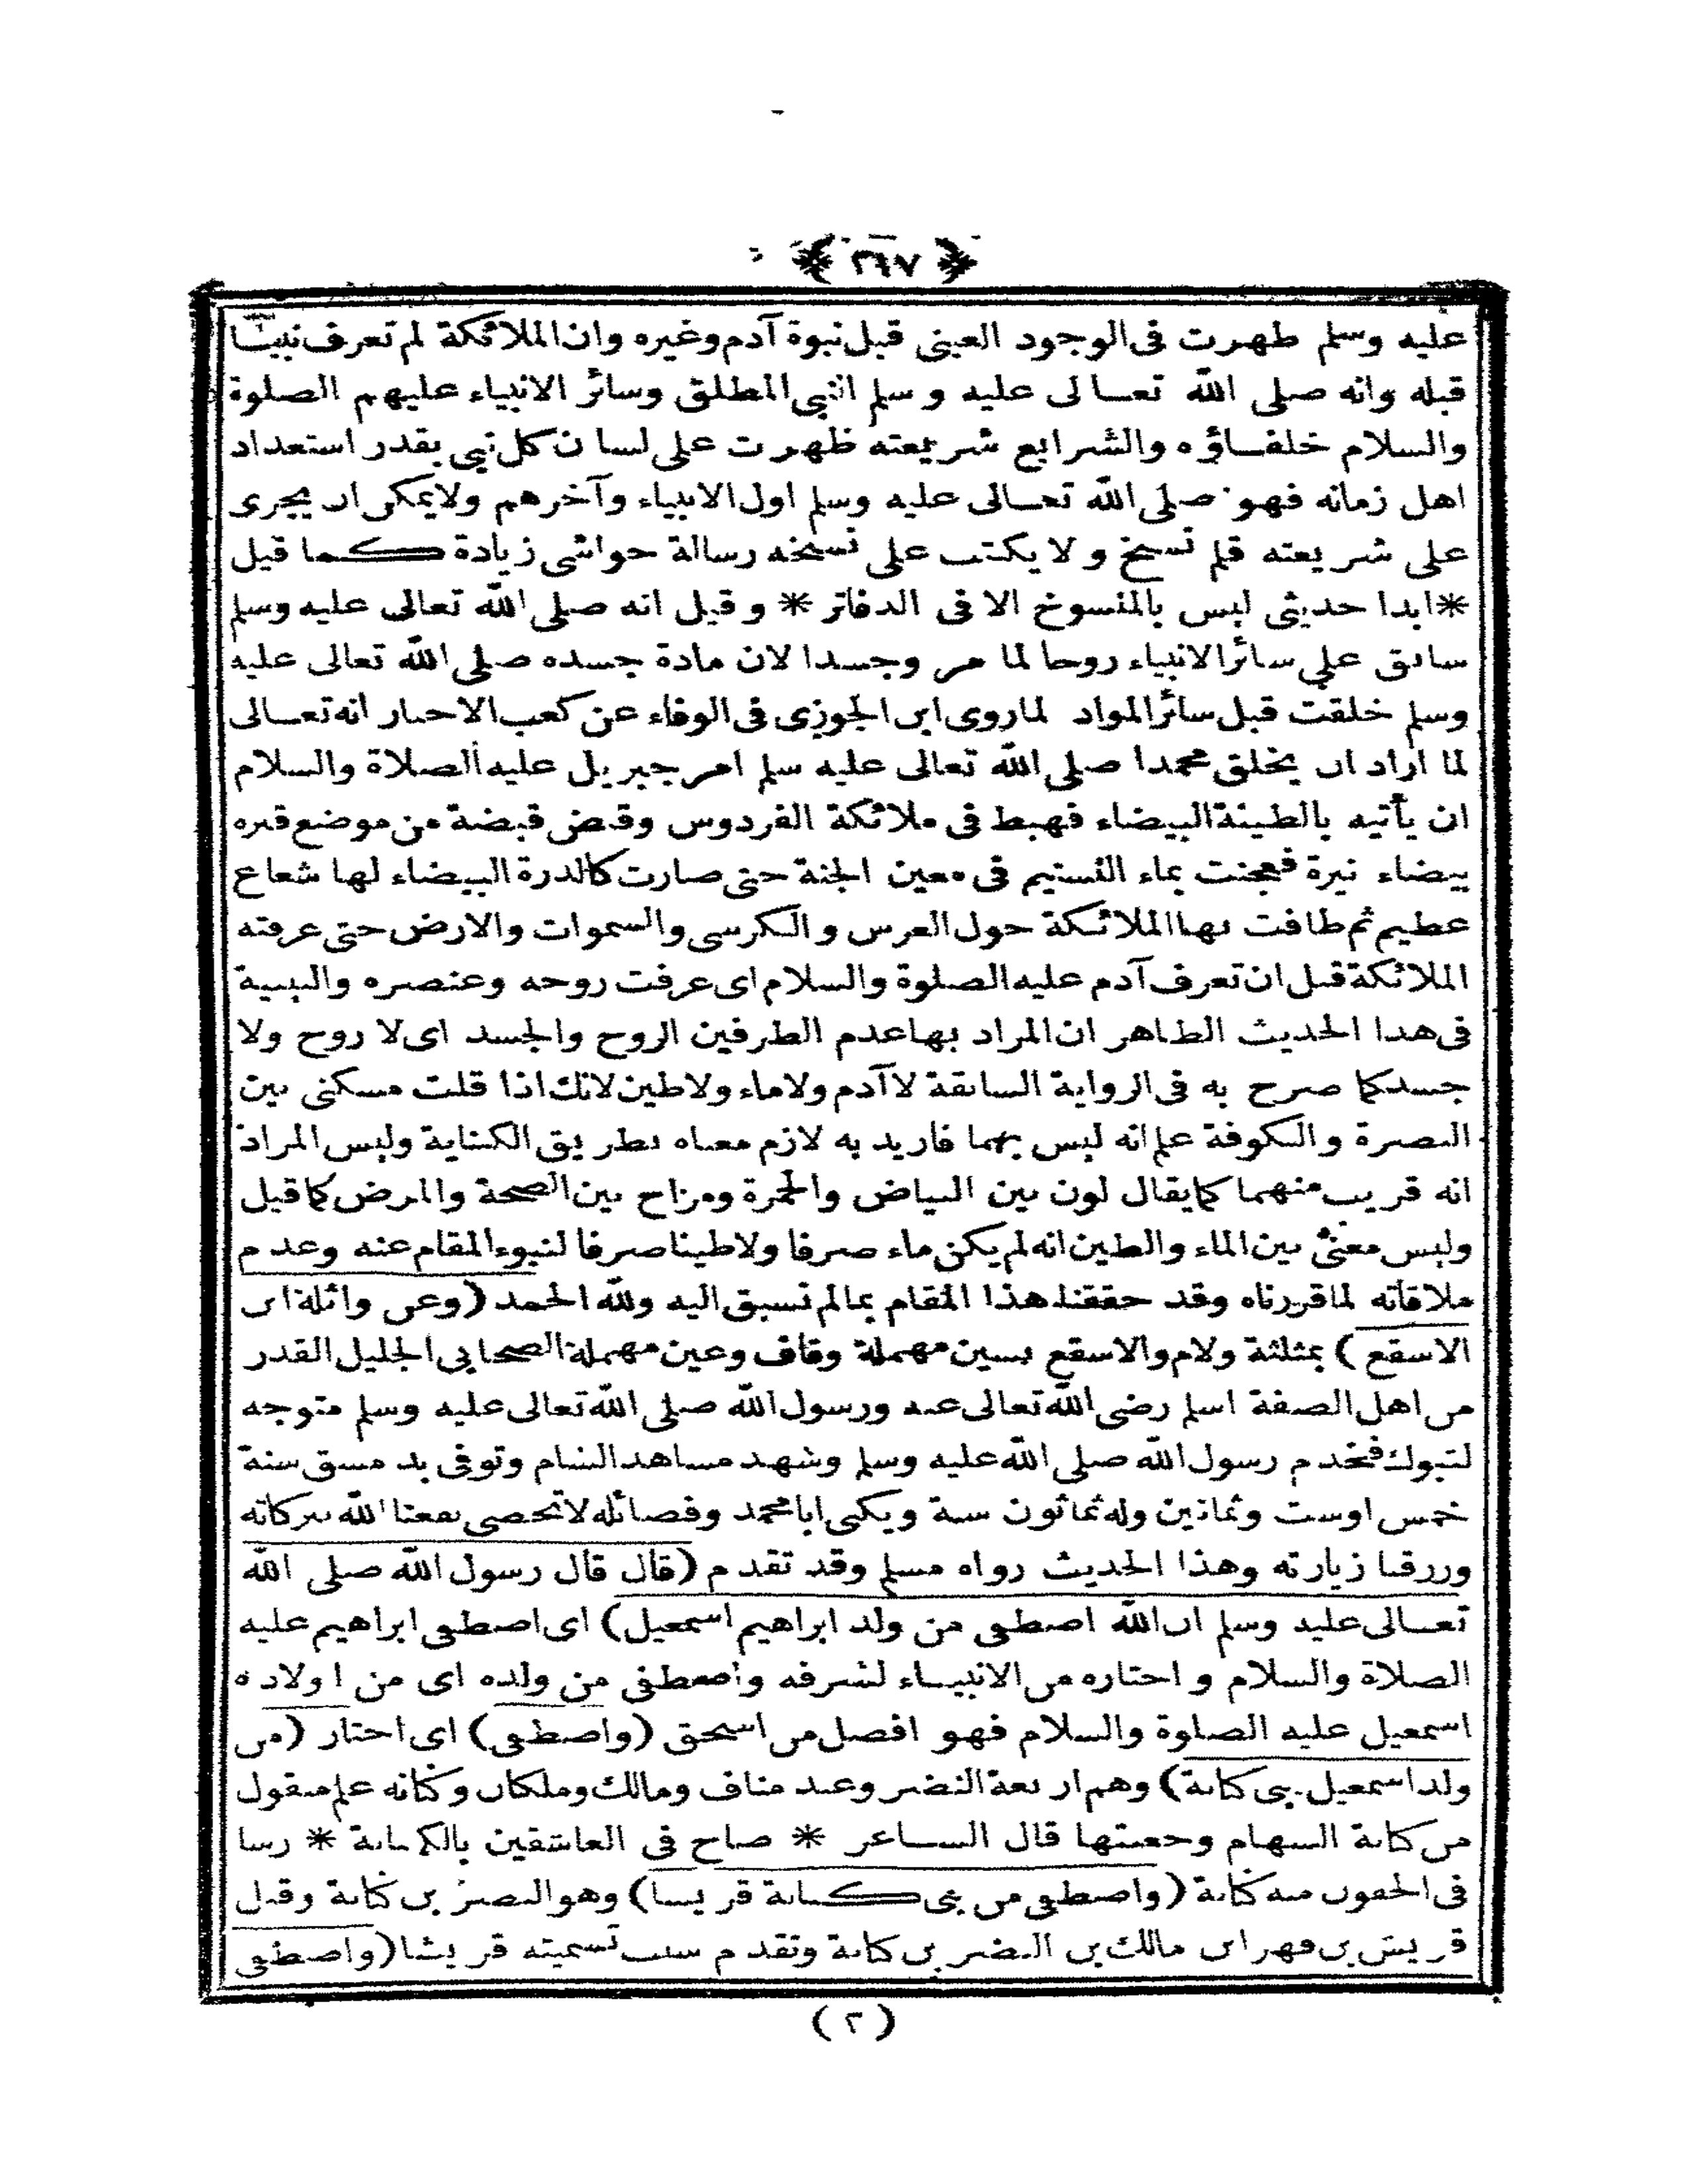 ﴿ ٣٦٧ ﴾
عليه وسلم ظهرت فى الوجود العينى قبل نبوة آدم وغيره وان الملائكة لم تعرف نبيا
قبله وانه صلى الله تعالى عليه وسلم النبى المطلق وسائر الانبياء عليهم الصلوة
والسلام خلفاؤه والشرايع شريعته ظهرت على لسان كل نبى بقدر استعداد
اهل زمانه فهو صلى الله تعالى عليه وسلم اول الانبياء وآخرهم ولايمكن ان يجرى
على شريعته قلم نسخ ولا يكتب على نسخه رسالة حواشى زيادة كما قيل
*ابدا حديثى ليس بالمنسوخ الا فى الدفاتر * وقيل انه صلى الله تعالى عليه وسلم
سابق على سائر الانبياء روحا لما مر وجسدا لان مادة جسده صلى الله تعالى عليه
وسلم خلقت قبل سائر المواد لماروى ابن الجوزى فى الوفاء عن كعب الاحبار انه تعالى
لما اراد ان يخلق محمدا صلى الله تعالى عليه سلم امر جبريل عليه الصلاة والسلام
ان يأتيه بالطينة البيضاء فهبط فى ملائكة الفردوس وقبض قبضة من موضع قبره
بيضاء نيرة فعجنت بماء التسنيم فى معين الجنة حتى صارت كالدرة البيضاء لها شعاع
عظيم ثم طافت بها الملائكة حول العرش والكرسى والسموات والارض حتى عرفته
الملائكة قبل ان تعرف آدم عليه الصلوة والسلام اى عرفت روحه وعنصره والبينية
فى هذا الحديث الظاهر ان المراد بها عدم الطرفين الروح والجسد اى لا روح ولا
جسد كما صرح به فى الرواية السابقة لا آدم ولا ماء ولا طين لانك اذا قلت مسكنى بين
البصرة والكوفة علم انه ليس بهما فاريد به لازم معناه بطريق الكناية وليس المراد
انه قريب منهما كما يقال لون بين البياض والحمرة ومزاج بين الصحة والمرض كما قيل
وليس معنى بين الماء والطين انه لم يكن ماء صرفا ولا طينا صرفا لنبوء المقام عنه وعدم
ملاقاته لما قررناه وقد حققنا هذا المقام بمالم نسبق اليه ولله الحمد (وعن واثلة ابن
الاسقع) بمثلثة ولام والاسقع بسين مهملة وقاف وعين مهملة الصحابى الجليل القدر
من اهل الصفة اسلم رضى الله تعالى عنه ورسول الله صلى الله تعالى عليه وسلم متوجه
لتبوك فخدم رسول الله صلى الله عليه وسلم وشهد مشاهد الشام وتوفى بدمشق سنة
خمس اوست وثمانين وله ثمانون سنة ويكنى ابا محمد وفضائله لا تحصى نفعنا الله ببركاته
ورزقنا زيارته وهذا الحديث رواه مسلم وقد تقدم (قال قال رسول الله صلى الله
تعالى عليه وسلم ان الله اصطفى من ولد ابراهيم اسمعيل) اى اصطفى ابراهيم عليه
الصلاة والسلام واختاره من الانبياء لشرفه واصطفى من ولده اى من اولاده
اسمعيل عليه الصلوة والسلام فهو افضل من اسحق (واصطفى) اى اختار (من
ولد اسمعيل بنى كنانة) وهم اربعة النضر وعبد مناف ومالك وملكان وكنانه علم منقول
من كنانة السهام وجعبتها قال الشاعر * صاح فى العاشقين بالكنانة * رشا
فى الجفون منه كنانة (واصطفى من بنى كنانة قريشا) وهو النضر بن كنانة وقيل
قريش بن فهر ابن مالك بن النضر بن كنانة وتقدم سبب تسميته قريشا (واصطفى
(٢)